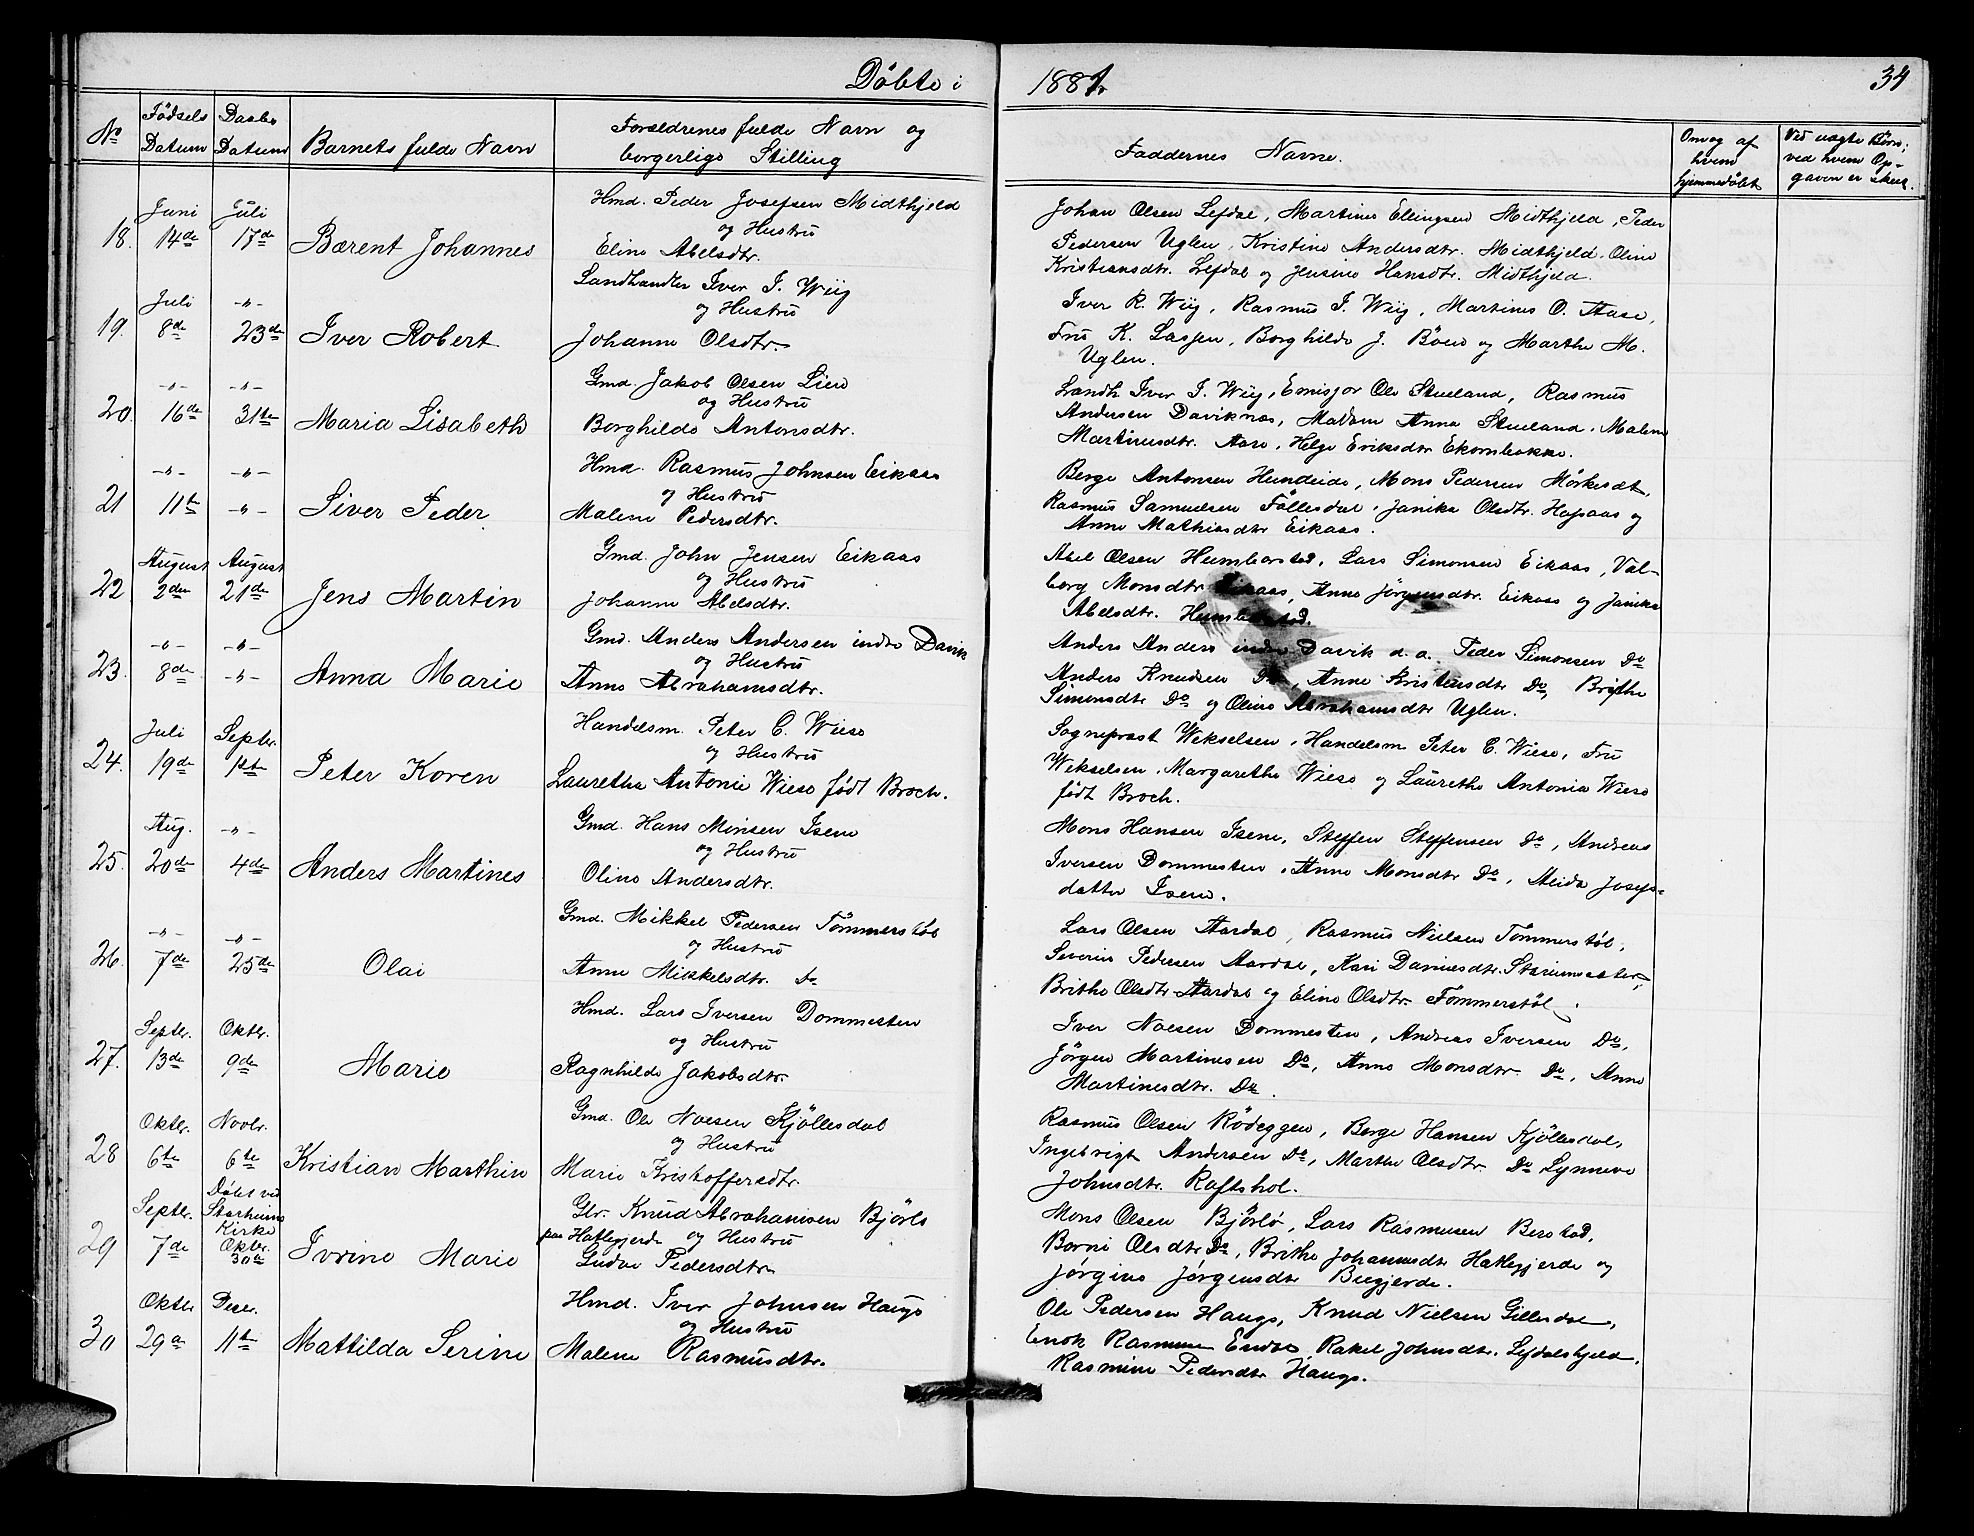 Döbte i 1881. 34
No Födsels Datum Daabs Datum Barnets fulde Navn Forældrenes fulde Navn og borgerlige Stilling Faddernes Navne. Om og af hvem hjemmedöbt Ved uægte Börn; ved hvem Opgaven er skeet.
18. Juni 14de Juli 17de Bærent Johannes
Hmd. Peder Josefsen Midthjeld
og Hustru
Eline Abelsdtr.
Johan Olsen Lefdal, Martines Ellingsen Midthjeld, Peder
Pedersen Uglen, Kristine Andersdtr. Midthjeld, Oline
Kristiansdtr. Lefdal og Jensine Hansdtr. Midthjeld.
19. Juli 8de -"- 23de Iver Robert
Landhandler Iver I. Wiig
og Hustru
Johanne Olsdtr.
Iver R. Wiig, Rasmus I. Wiig, Martines O. Aase,
Fru K. Lassen, Borghilde J. Böen og Marthe M.
Uglen.
20. -"- 16de -"- 31te Maria Lisabeth
Gmd. Jakob Olsen Lien
og Hustru
Borghilde Antonsdtr.
Landh. Iver I. Wiig, Emisjær Ole Stueland, Rasmus
Andersen Daviknæs, Madam Anna Stueland, Malene
Martinusdtr. Aase, Helge Eriksdtr Ekornbakke.
21 -"- 11te -"- -"- Siver Peder
Hmd. Rasmus Johnsen Eikaas
og Hustru
Malene Pedersdtr.
Berge Antonsen Hundeide, Mons Pedersen
Rasmus Samuelsen Föllesdal, Janike Olsdtr. Hopaas og
Anne Mathiasdtr Eikaas.
22 August 2den August 21de Jens Martin
Gmd. John Jensen Eikaas
og Hustru
Johanne Abelsdtr.
Abel Olsen Humborstad, Lars Simonsen Eikaas, Val-
borg Monsdtr Eikaas, Anne Jörgensdtr. Eikaas og Janike
Abelsdtr. Humborstad.
23. -"- 8de -"- -"- Anna Marie
Gmd. Anders Andersen indre Davik
og Hustru
Anne Abrahamsdtr.
Anders Anders indre Davik d.a. Peder Simonsen Do
Anders Knudsen Do, Anne Kristensdtr Do, Brithe
Simonsdtr Do og Oline Abrahamsdtr Uglen.
24. Juli 19de Septbr. 1ste Peter Koren
Handelsm. Peter C. Wiese
og Hustru
Lauretha Antonie Wiese födt Broch.
Sognepræst Wekselsen, Handelsm Peter C. Wiese, Fru
Wekselsen, Margarethe Wiese og Laurethe Antonia Wiese
födt Broch.
25. Aug. 20de -"- 4de Anders Martines
Gmd. Hans Monsen Isene
og Hustru
Oline Andersdtr.
Mons Hansen Isene, Steffen Steffensen Do, Andreas
Iversen Dommesten, Anne Monsdtr Do, Aleida Josefs-
datter Isene.
26. -"- 7de -"- 25de Olai
Gmd. Mikkel Pedersen Tömmerstöl
og Hustru
Anne Mikkelsdtr. Do
Lars Olsen Aardal, Rasmus Nielsen Tömmerstöl,
Severin Pedersen Aardal, Kari Danielsdtr.
Brithe Olsdtr Aardal og Eline Olsdtr Tömmerstöl.
27. Septbr. 13de Oktbr. 9de Marie
Hmd. Lars Iversen Dommesten
og Hustru
Ragnhilde Jakobsdtr.
Iver Noesen Dommesten, Andreas Iversen Do,
Jörgen Martinesen Do, Anne Monsdtr. Do, Anne
Martinesdtr. Do.
28 Oktbr. 6te Novbr. 6te Kristian Marthin
Gmd. Ole Noesen Kjöllesdal
og Hustru
Marie Kristoffersdtr.
Rasmus Olsen Rödeggen, Berge Hansen Kjöllesdal,
Ingebrigt Andersen Do, Marthe Olsdtr. Do Synneve
Johnsdtr. Raftshol.
29 Septbr. 7de Döbt ved Starheims Kirke Oktbr. 30te Ivrine Marie
Gbr. Knud Abrahamsen Björlo
paa Hatlegjerde og Hustru
Gudve Pedersdtr
Mons Olsen Björlö, Lars Rasmusen Berstad,
Borni Olsdtr Do, Brithe Johannsdtr Hatlegjerde og
Jörgine Jörgensdtr Beegjerde.
30 Oktbr 29de Decbr. 11te Mattilda Serine
Hmd. Iver Johnsen Hauge
og Hustru
Malene Rasmusdtr.
Ole Pedersen Hauge, Knud Nielsen Gillesdal,
Enok Rasmusen Endal, Rakel Johnsdtr. Lefdalshjeld,
Rasmine Pedersdtr Hauge.